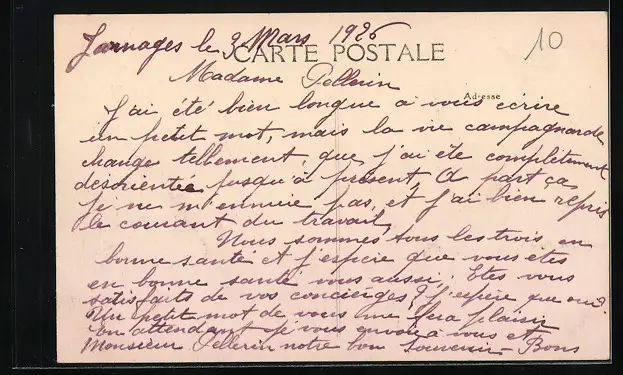 Jarnages le 3 Mars 1926
10
CARTE POSTALE
Madame Pellerin
Adresse
J'ai été bien longue à vous écrire
un petit mot, mais la vie campagnarde
change tellement, que j'ai été complètement
désorientée jusqu'à présent, A part ça
je ne m'ennuie pas, et j'ai bien repris
le courant du travail,
Nous sommes tous les trois en
bonne santé et j'espère que vous êtes
en bonne santé vous aussi; Etes vous
satisfaits de vos concierges? J'espère que oui?
Un petit mot de vous me fera plaisir
En attendant je vous envoie à vous et
Monsieur Pellerin notre bon Souvenir - Bons